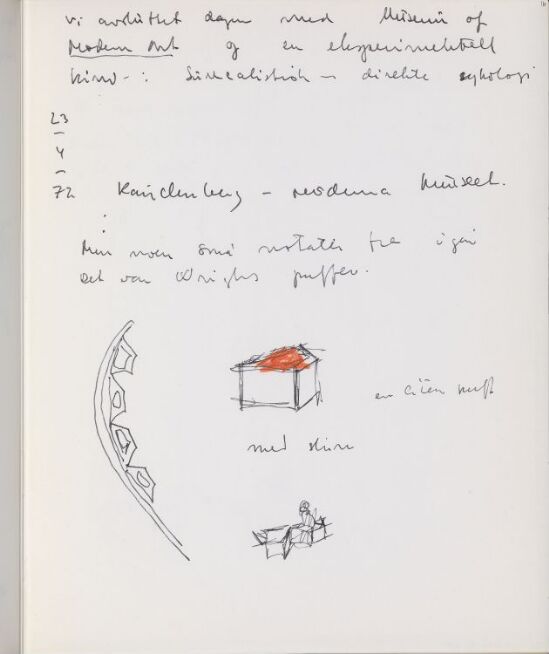 vi avsluttet dagen med Museum of
Modern Art og en eksperimentell
kino -: Surrealistisk - direkte
23
-
4
-
72 - Moderna Museet.
Men noen små notater fra igår
det var Wrights puffer.
en liten puff
med skinn